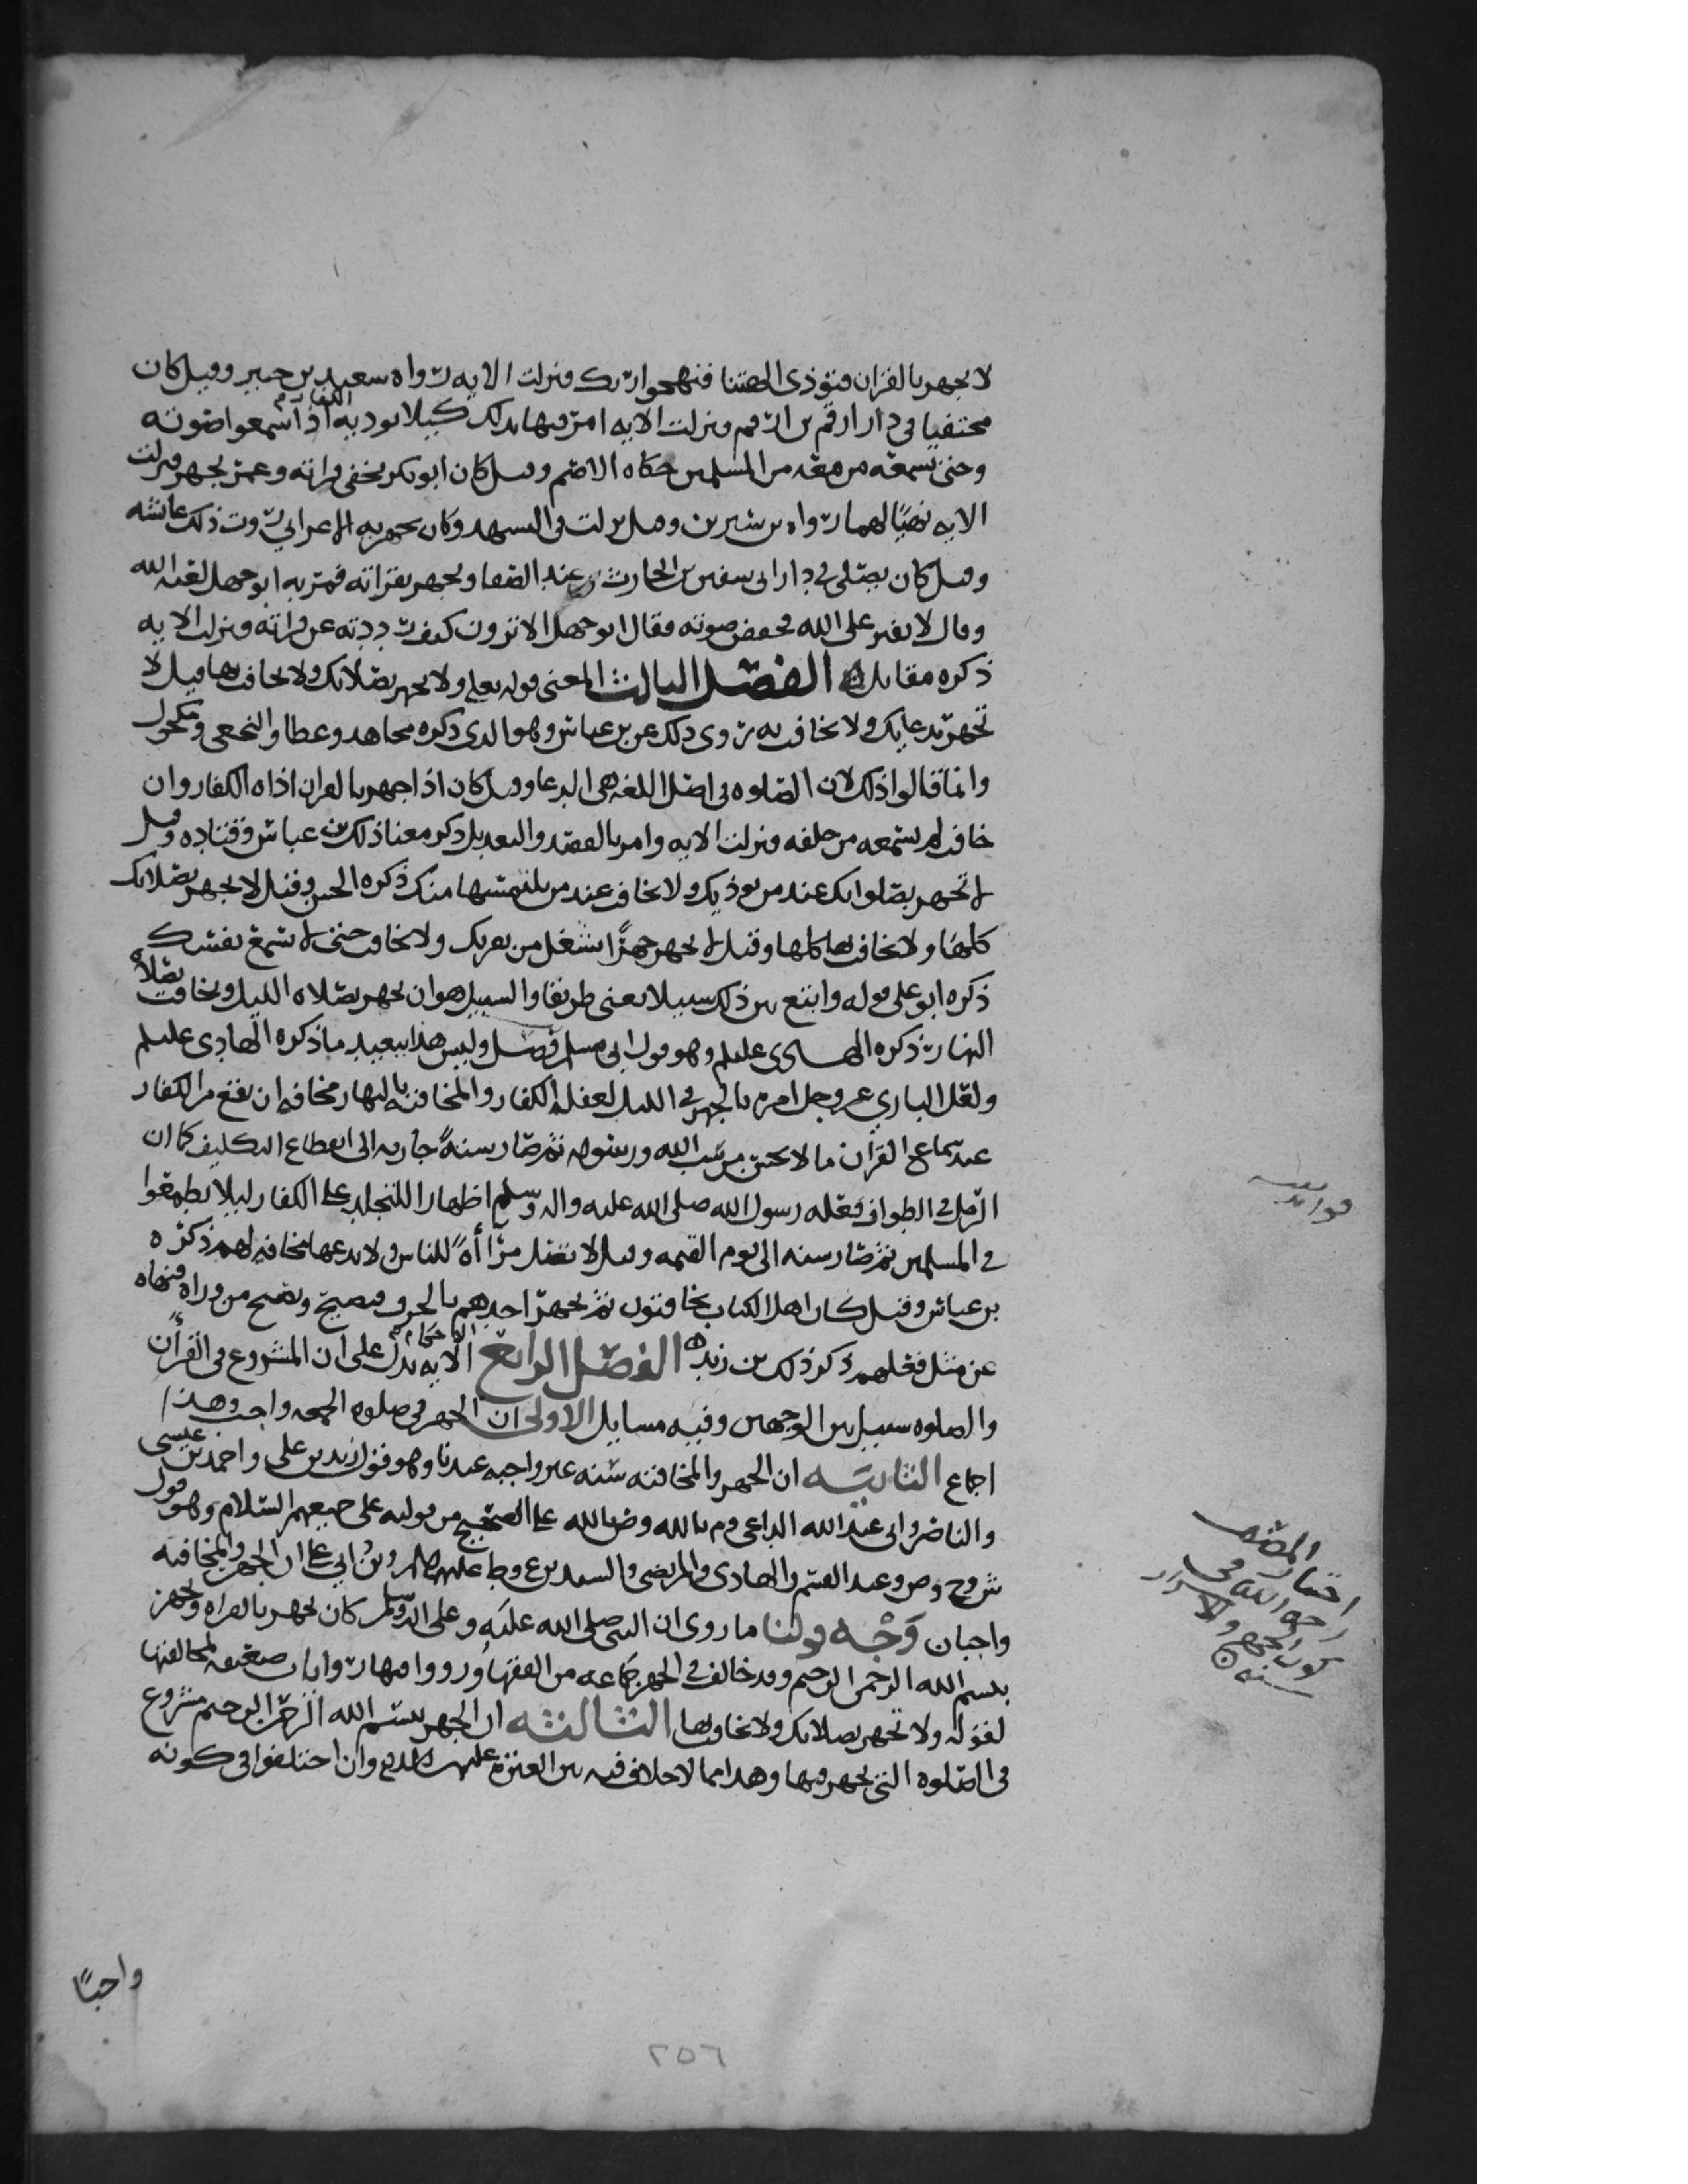 لا تجهر بالقران فتوذي الهتنا فنهجوا ربك فنزلت الايه رواه سعيد بن جبير وقيل كان
مختفيا في دار ارقم بن ارقم ونزلت الايه امر فيها بذلك كيلا يوديه الكفار اذا سمعوا صوته
وحتى يسمعه من معه من المسلمين حكاه الاصم وقيل كان ابو بكر يخفي قراته وعمر يجهر فنزلت
الايه نهيا لهما رواه بن سيرين وقيل نزلت في التشهد وكان يجهر به الاعرابي روت ذلك عائشه
وقيل كان يصلي في دار ابي سفين بن الحارث عند الصفا ويجهر بقراته فمر به ابو جهل لعنه الله
وقال لا تفتر على الله فخفض صوته فقال ابو جهل الا ترون كيف رددته عن قراته ونزلت الايه
ذكره مقاتل الفصل الثالث المعنى قوله تعلى ولا تجهر بصلاتك ولا تخافت بها قيل لا
تجهر بدعايك ولا تخافت به روى ذلك عن بن عباس وهو الذي ذكره مجاهد وعطا والنخعي ومكحول
وانما قالوا ذلك لان الصلوه في اصل اللغه هي الدعا وقيل كان اذا جهر بالقران اذاه الكفار وان
خافت لم يسمعه من خلفه فنزلت الايه وامر بالقصد والتعديل ذكر معنا ذلك بن عباس وقتاده وقيل
لا تجهر بصلواتك عند من يوذيك ولا تخافت عند من يلتمسها منك ذكره الحسن وقيل لا تجهر بصلاتك
كلها ولا تخافت بها كلها وقيل لا تجهر جهرًا يشغل من بقربك ولا تخافت حتى لا تسمع نفسك
ذكره ابو علي قوله وابتغ بين ذلك سبيلا يعني طريقا والسبيل هو ان يجهر بصلاه الليل ويخافت بصلاه
النهار ذكره الهادي عليلم وهو قول ابي مسلم فصل وليس هذا ببعيد ما ذكره الهادي عليلم
ولعل الباري عز وجل امره بالجهر في الليل لغفله الكفار والمخافته بالنهار مخافه ان يقع من الكفار
عند سماع القران ما لا يحسن من سب الله ورسوله ثم صار سنهً جاريه الى انقطاع التكليف كما ان
الرمل في الطواف فعله رسول الله صلى الله عليه واله وسلم اظهارا للتجلد على الكفار ليلا يطمعوا
في المسلمين ثم صار سنه الى يوم القيمه وقيل لا تصل مرا أهً للناس ولا تدعها مخافه لهم ذكره
بن عباس وقيل كان اهل الكتاب يخافتون ثم يجهر احدهم بالحرف فيصيح ويصيح من وراه فنهاه
عن مثل فعلهم ذكر ذلك بن زيد الفصل الرابع الاحكام الايه تدل على ان المشروع في القرأن
والصلوه سبيل بين الوجهين وفيه مسايل الاولى ان الجهر في صلوه الجمعه واجب وهذا
اجماع الثانيه ان الجهر والمخافته سنه غير واجبه عندنا وهو قول زيد بن علي واحمد بن عيسى
والناصر وابي عبد الله الداعي وم بالله وض بالله على الصحيح من قوليه على جميعهم السلام وهو قول
ش وح وص وعند القسم والهادي والمرتضى والسيدين ع وط عليهم السلام وبن ابي ان الجهر والمخافته
واجبان وَجْه قولنا ما روى ان النبي صلى الله عليه وعلى اله وسلم كان يجهر بالقراه ويجهر
بسم الله الرحمن الرحيم وقد خالف في الجهر جماعه من الفقها ورووا فيها روايات ضعيفه لمخالفتها
لقوله ولا تجهر بصلاتك ولا تخافت بها الثالثه ان الجهر ببسم الله الرحمن الرحيم مشروع
في الصلوه التي يجهر فيها وهذا مما لا خلاف فيه بين العتره عليهم السلام وان اختلفوا في كونه
واجبًا
فوائد
اختار المصنف
رحمه الله في
كون الجهر والاسرار
سنه
٢٥٦